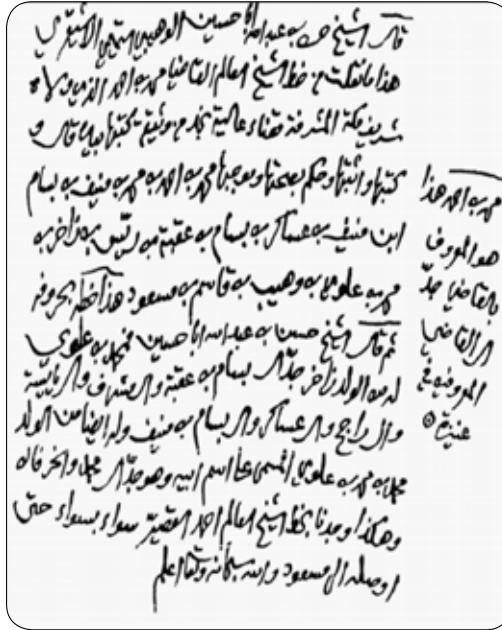 قال الشيخ حسن بن عبدالله أبا حسين الوهيبي التميمي الأشيقري
هذا ما نقلت من خط الشيخ العالم القاضي محمد بن احمد الذي ولاه
شريف مكة المشرفة قضاء عالية نجد من وثيقة كتبها بيده قال و
كتبها واثبتها وحكم بصحتها وبموجبها محمد بن احمد بن محمد بن منيف بن بسام
ابن منيف بن عساكر بن بسام بن عقبة بن ريس بن زاخر بن
محمد بن علوي بن وهيب بن قاسم بن مسعود هذا خطه بحروفه
ثم قال الشيخ حسن بن عبدالله أبا حسين فمحمد بن علوي
له من الولد زاخر جد آل بسام بن عقبة وال مشرف وال ريس
وال راجح وال عساكر وال بسام بن منيف وله ايضا من الولد
محمد بن محمد بن علوي المسمى على اسم ابيه وهو جد آل محمد والخرفان
وهكذا وجدنا بخط الشيخ العالم احمد القصير سواء بسواء حتى
اوصله الى مسعود والله سبحانه وتعالى اعلم
محمد بن احمد هذا
هو المعروف
بالقاضي جد
آل القاضي
المعروفين في
عنيزة